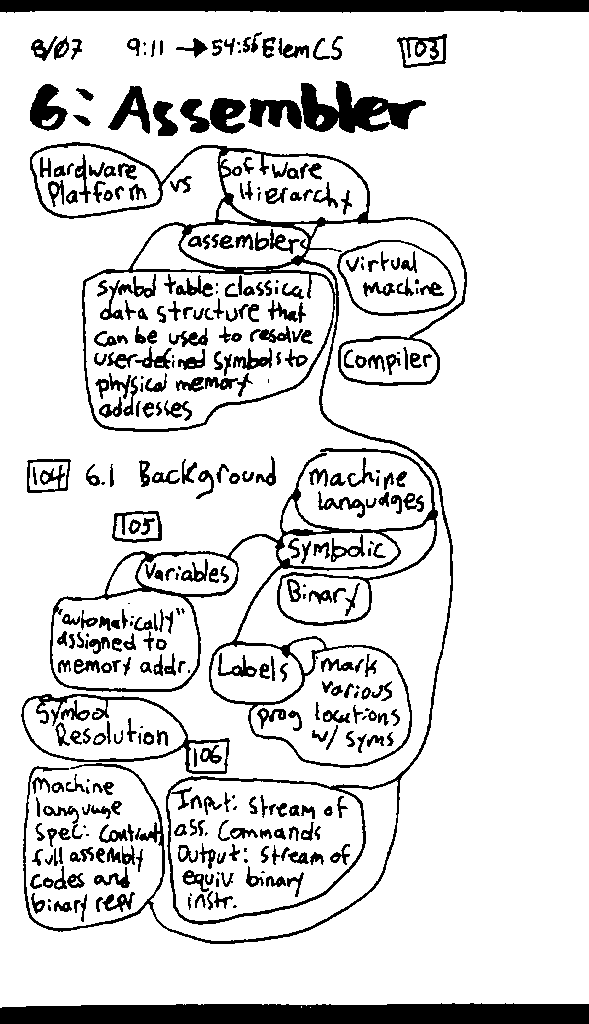 8/07 9:11 → 54:55 Elem CS 103
6: Assembler
Hardware
Platform
vs
Software
Hierarchy
assembler
Virtual
machine
Symbol table: classical
data structure that
can be used to resolve
user-defined symbols to
physical memory
addresses
Compiler
104 6.1 Background
Machine
languages
105
Symbolic
Variables
Binary
"automatically"
assigned to
memory addr.
Labels
mark
various
prog locations
w/ syms
Symbol
Resolution
106
Machine
language
Spec: Contract,
full assembly
codes and
binary repr
Input: Stream of
ass. Commands
Output: Stream of
equiv binary
instr.